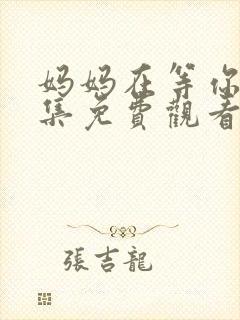 妈妈在等你
集免費觀看
張吉龍